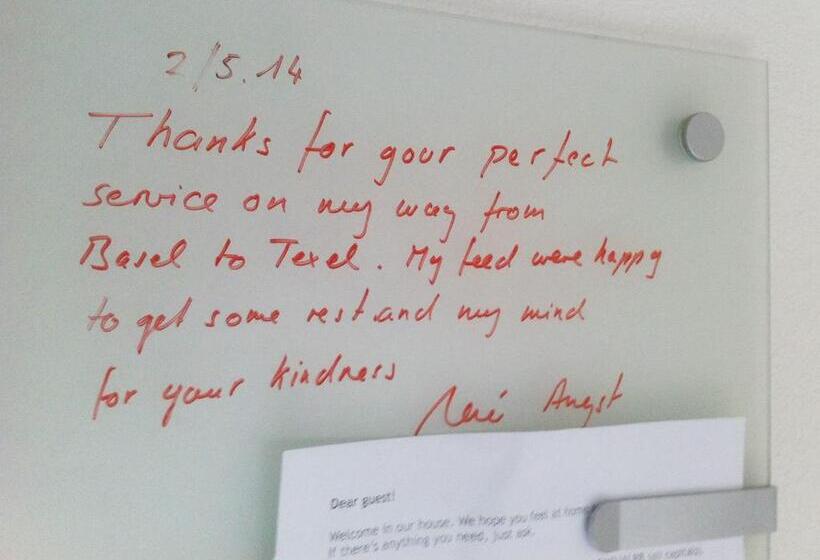 2/5.14
Thanks for your perfect
service on my way from
Basel to Texel. My feed were happy
to get some rest and my mind
for your kindness
René Angst
Dear guest!
Welcome in our house. We hope you feel at home
If there's anything you need, just ask.